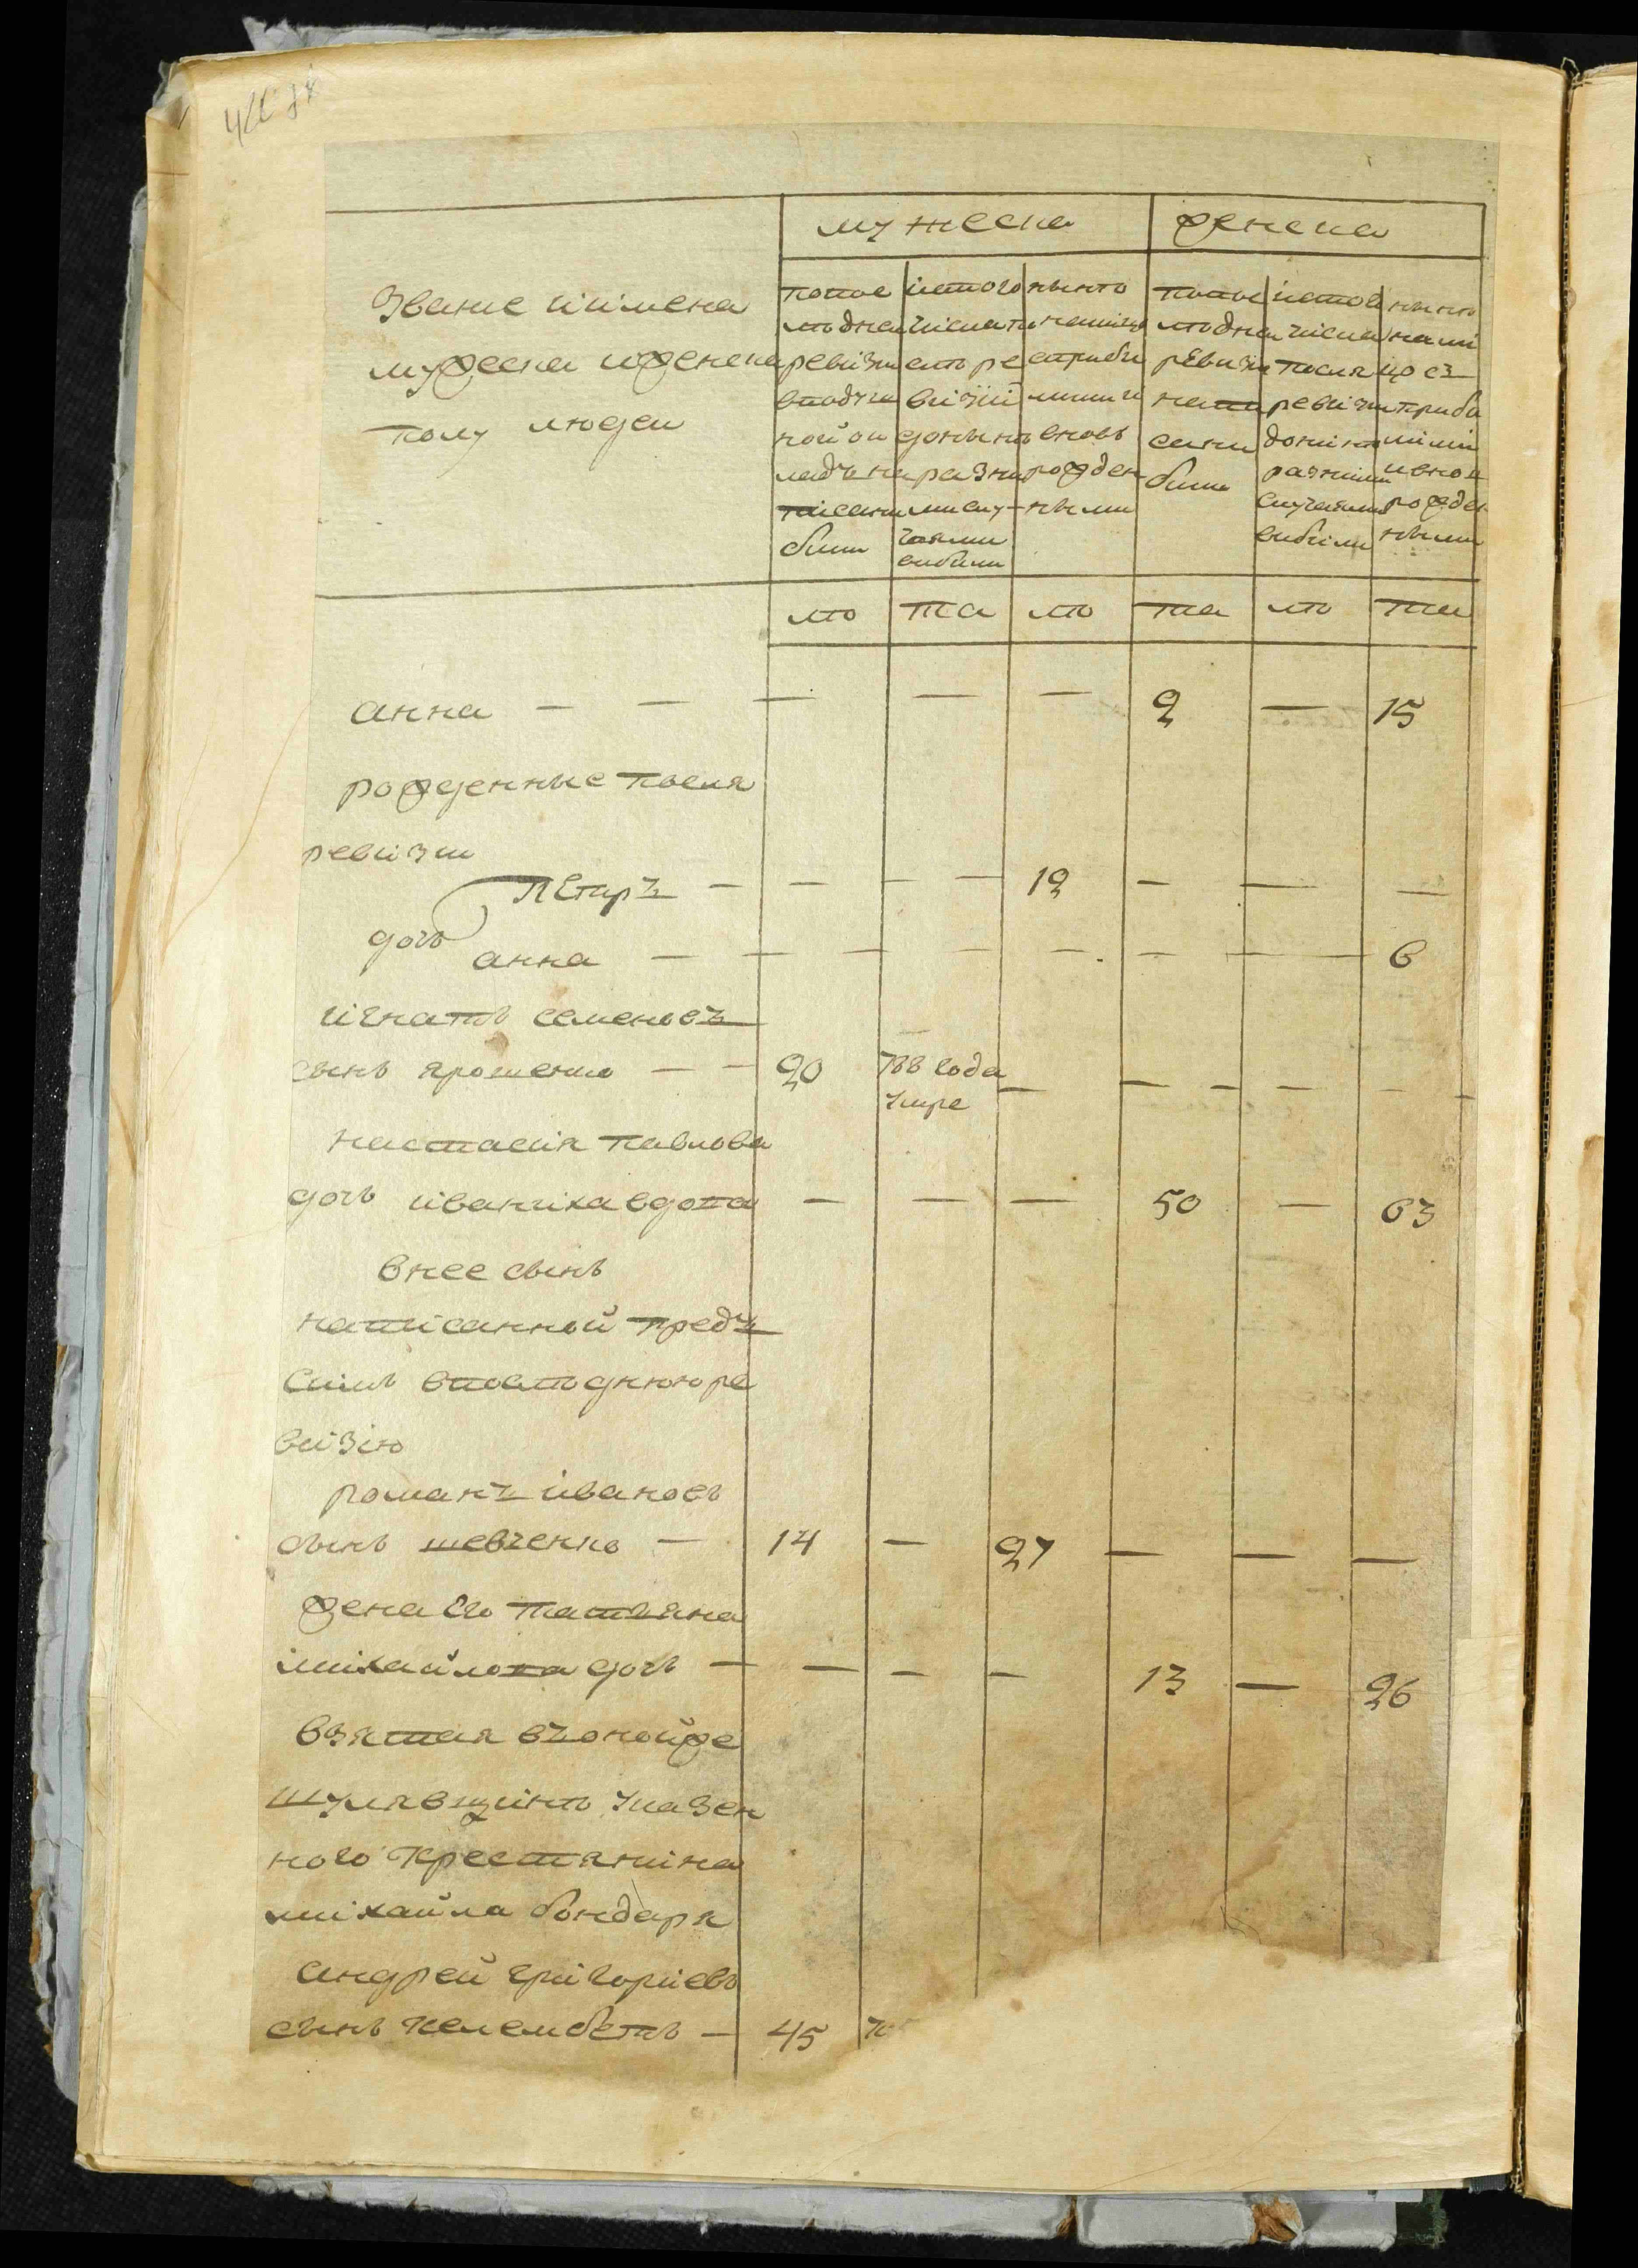 мужеска женска
Званіе іимена
мужеска иженска
полу людей
попос
лѣдней
ревизіи
вподуш
ной ок
ладъ на
писани
били
ізтого
числа по
слѣ ре
візіи
донынѣ
разни
мислу-
чаями
вибили
нынѣ
налицо
стриби
лими и
вновь
рожден
ными
попос
лѣдней
ревизіи
напи
сани
били
ізтого
числа
посля
ревізіи
донинѣ
разними
случаями
вибили
нынѣ
нали
цо съ
приби
лими
ивнов
рожден
ными
лѣ та лѣ та лѣ та
анна — — — — — 2 — 15
рожденные посля
ревизіи
Петръ — — — — 12 — — —
дочь анна — — — — — — — 6
игнатъ семеновъ
сынъ ярошенко — — 20 788 года — — — — —
умре
настасія павлова
дочь иваниха вдова — — — 50 — 63
внее сынъ
написанной предъ
симъ впослѣднюю ре
визію
романъ івановъ
сынъ шевченко — 14 — 27 — — —
жена его татьяна
михайлова дочь — — — — 13 — 26
взятая вонойже
шулявщинѣ указен
ного крестянина
михайла бондаря
андрей григориевъ
сынъ келембетъ — 45